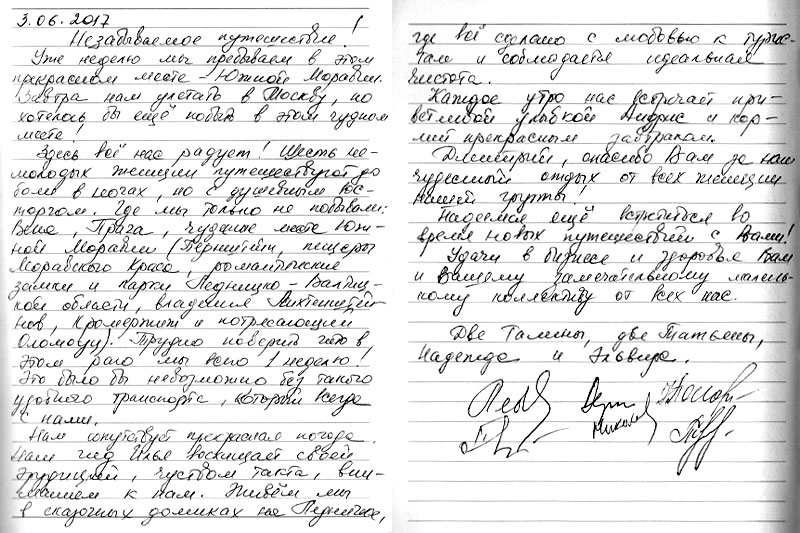 3.06.2017
Незабываемое путешествие!
Уже неделю мы пребываем в этом
прекрасном месте – Южной Моравии.
Завтра нам улетать в Москву, но
хотелось бы ещё побыть в этом чудном
месте!
Здесь всё нас радует! Шесть не-
молодых женщин путешествуют до
боли в ногах, но с душевным вос-
торгом. Где мы только не побывали:
Вена, Прага, чудные места Юж-
ной Моравии (Пернштейн, пещеры
Моравского Краса, романтические
замки и парки Ледницко-Валтиц-
кой области, владения Лихтенштей-
нов, Кромержиж и потрясающий
Оломоуц). Трудно поверить что в
этом раю мы всего 1 неделю!
Это было бы невозможно без такого
удобного транспорта, который всегда
с нами.
Нам сопутствует прекрасная погода.
Наш гид Илья восхищает своей
эрудицией, чуством такта, вни-
манием к нам. Живём мы
в сказочных домиках на
где всё сделано с любовью к турис-
там и соблюдается идеальная
чистота.
Каждое утро нас встречает при-
ветливой улыбкой и кор-
мит прекрасным завтраком.
Дмитрий, спасибо Вам за наш
чудесный отдых от всех женщин
нашей группы!
Надеемся ещё встретиться во
время новых путешествий с Вами!
Удачи в бизнесе и здоровья Вам
и Вашему замечательному малень-
кому коллективу от всех нас.
Две Галины, две Татьяны,
Надежда и Эльвира.